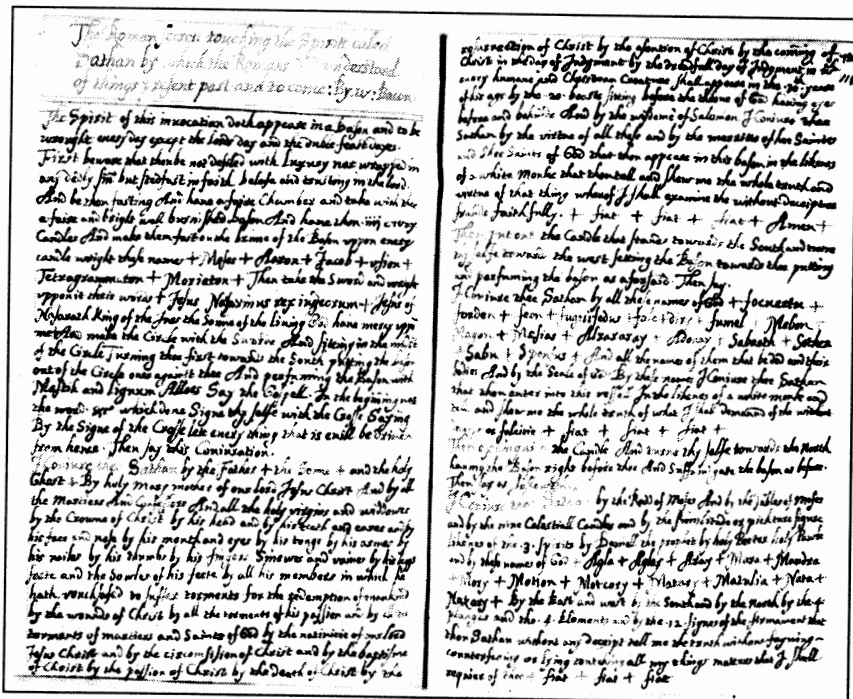 The Roman touching the Spirit caled
Sathan by which the Romans understood
of things present past and to come: By. w: Bacon
The Spirit of this invocation doth appeare in a Bason and to be
wrought every day except the lords day and the duble feast dayes.
First beware that thou be not defiled with Luxury nor wrapped in
any deadly sin but stedfast in faith belefe and trusting in the lord.
And be thou fasting And have a faire Chamber and take with thee
a faire and bright well burnished Bason And have thou .iiij every
Candles And make them fast on the brime of the Bason uppon every
candle wright these names + Moses + Aaron + Jacob + usion +
Tetragrammaton + Moriaton + Then take the Sword and wright
uppon it these words + Jesus Nasarinus rex + Jesus of
Nasarath King of the Jues the Sonne of the living God have mercy uppon
me And make the Circle with the And sitting in the midst
of the Circle turning thee first towards the South putting the bason
out of the Circle over against thee And perfuming the Bason with
Mastik and lignum Alloes Say the Gospell. In the beginning was
the word. which done Signe thy selfe with the Crosse Saying
By the Signe of the Crosse lett every thing that is evill be driven
from hence. Then say this Coniuration.
I Coniure thee Sathan by the father + the Sonne + and the holy
Ghost + By holy Mary mother of our lord Jesus Christ And by all
the Martiers And Confessors And all the holy virgins and widdowes
by the Crowne of Christ by his head and by his and eares and by
his face and nose by his mouth and eyes by his tonge by his armes by
his nailes by his thumbs by his fingers Sinowes and vaines by his legs
feete and the Sowles of his feete by all his members in which he
hath vouchsafed to suffer torments for the redemption of mankind
by the wounds of Christ by all the torments of his passion and by all the
torments of martiers and Saints of God by the nativitie of our lord
Jesus Christ and by the circumsision of Christ and by the baptisme
of Christ by the passion of Christ by the death of Christ by the
resurrection of Christ by the asention of Christ by the coming of
Christ in the day of Judgment by the dreadfull day of Judgment in
every humane and Christian Creature shall appeare in the .30. yeare
of his age by the .20. beasts sitting before the throne of God having eyes
before and behinde And by the wisdome of Salomon I Coniure thee
Sathan by the virtue of all these and by the merrites of hee Saints
and Shee Saints of God that thou appeare in this bason in the likenes
of a white Monke that thou tell and shew me the whole truth and
vertue of that thing wheof I shall examine thee without deceipt or
fraude faithfully. + fiat + fiat + fiat + Amen +
Then put out the Candle that stands towards the South and turne
thy selfe towards the west setting the Bason towards thee putting
and perfuming the bason as aforesaid. Then say.
I Coniure thee Sathan by all the names of God +
+ Mebon
+ Messias + + Adonay + Sabaoth + Sother
+ Sabu + + And all the names of them that be ded and their
bodies And by the Seale of God By these names I Coniure thee Sathan
that thou enter into this vessell In the likenes of a white monke and
tell and shew me the whole truth of what I shal demaund of thee without
or falsitie + fiat + fiat + fiat +
Then the Candle And turne thy selfe towards the North
having the Bason right before thee And Suffumigate the bason as before.
Then say as
I Coniure thee Sathan by the Rod of Moses And by the tables of Moses
and by the nine Celestiall Candles and by the similitude or picture figure
likenes of the .3. spirits by Daniell the prophet by holy
and by these names of God + Agla + Aglay + Asay + Musa + Mandra
+ Mory + Motion + Motcory + + Mazulia + Nata +
Natasy + By the East and west by the South and by the North by the .4.
plangets and the .4. Elements and by the .12. signes of the firmament that
thou Sathan without any deceipt tell me the truth without fayning
counterfeting or lying touching all my things matters that I shall
require of thee + fiat + fiat + fiat